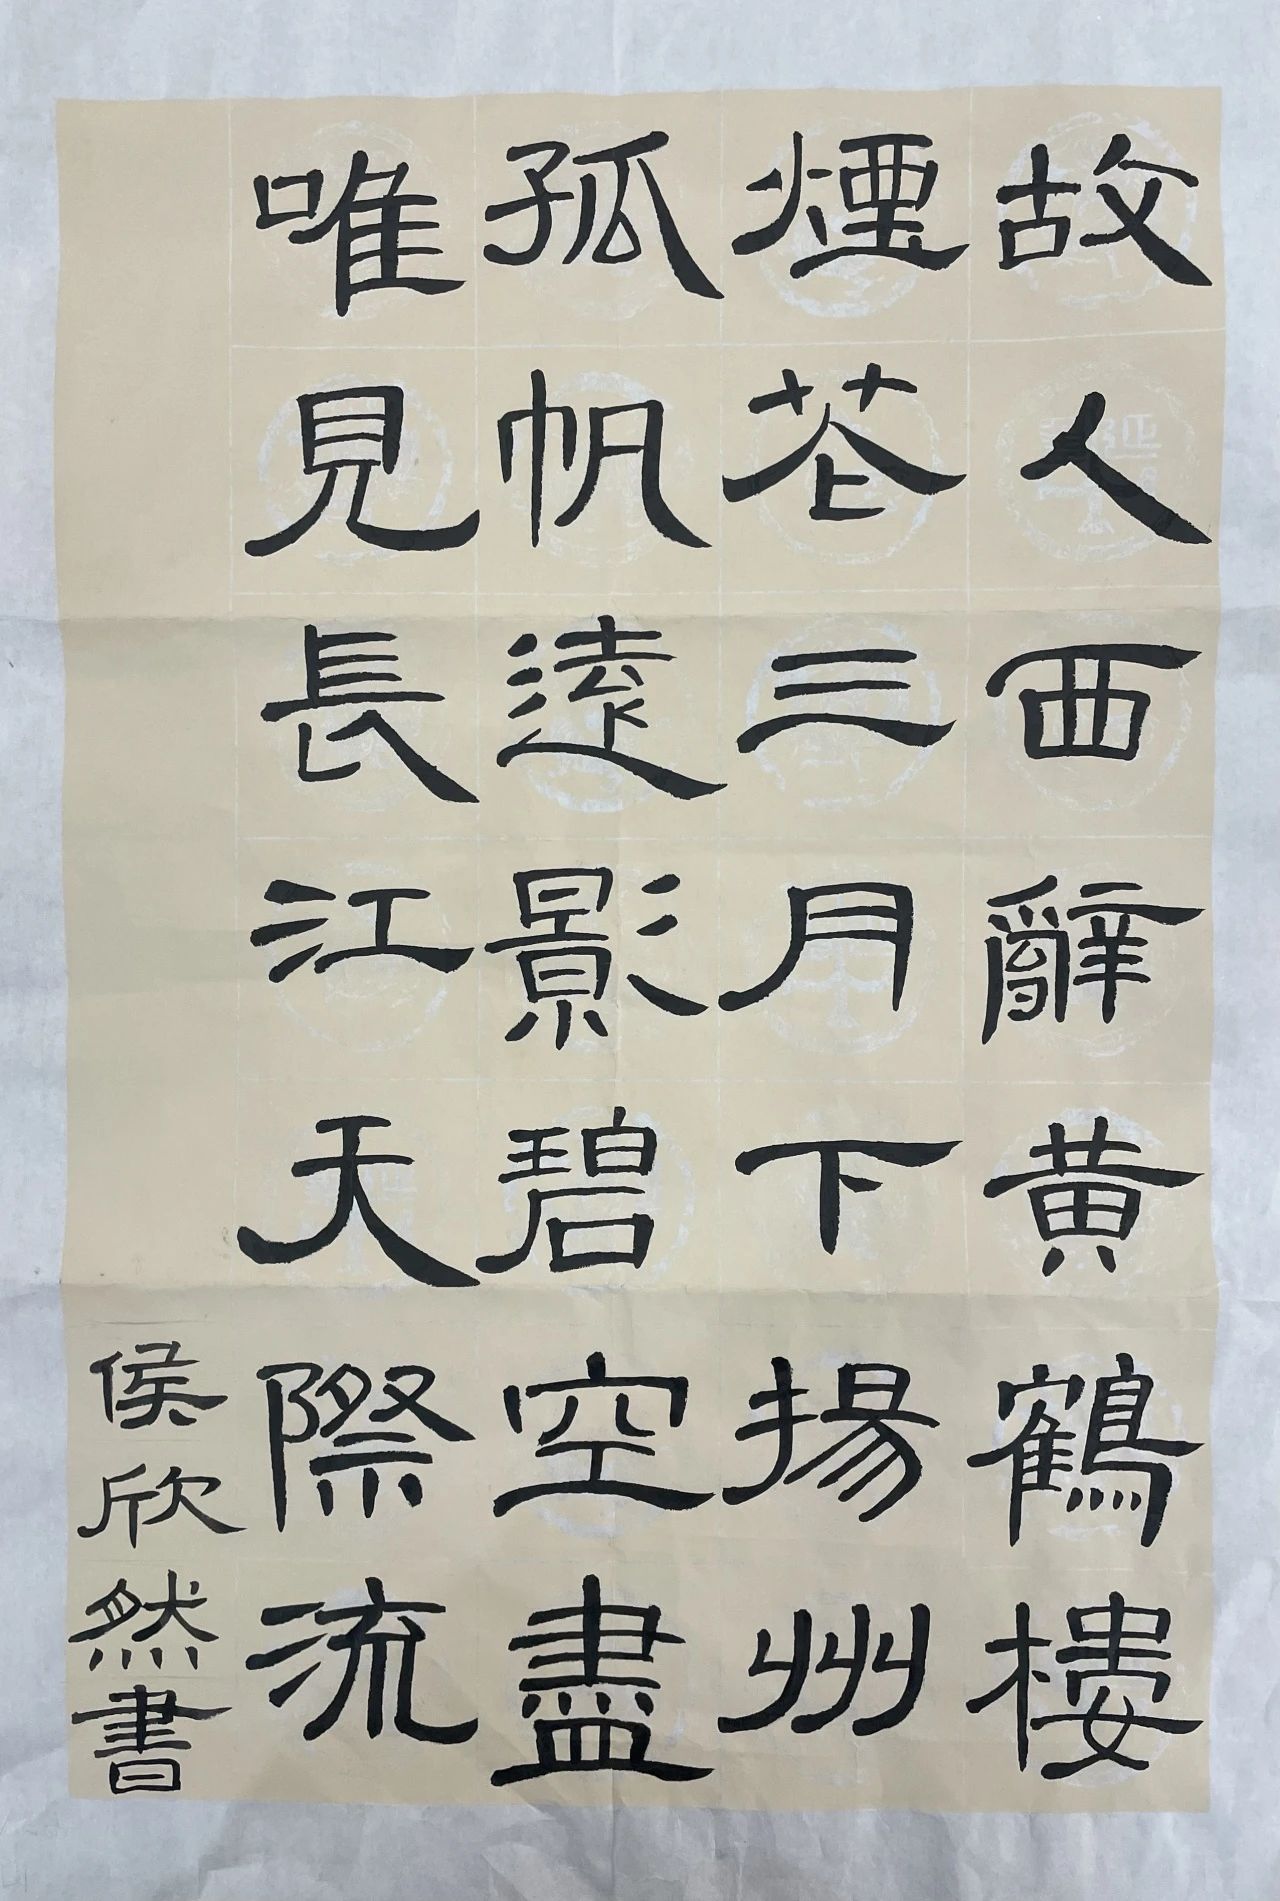 故人西辭黃鶴樓
煙花三月下揚州
孤帆遠影碧空盡
唯見長江天際流
侯欣然書